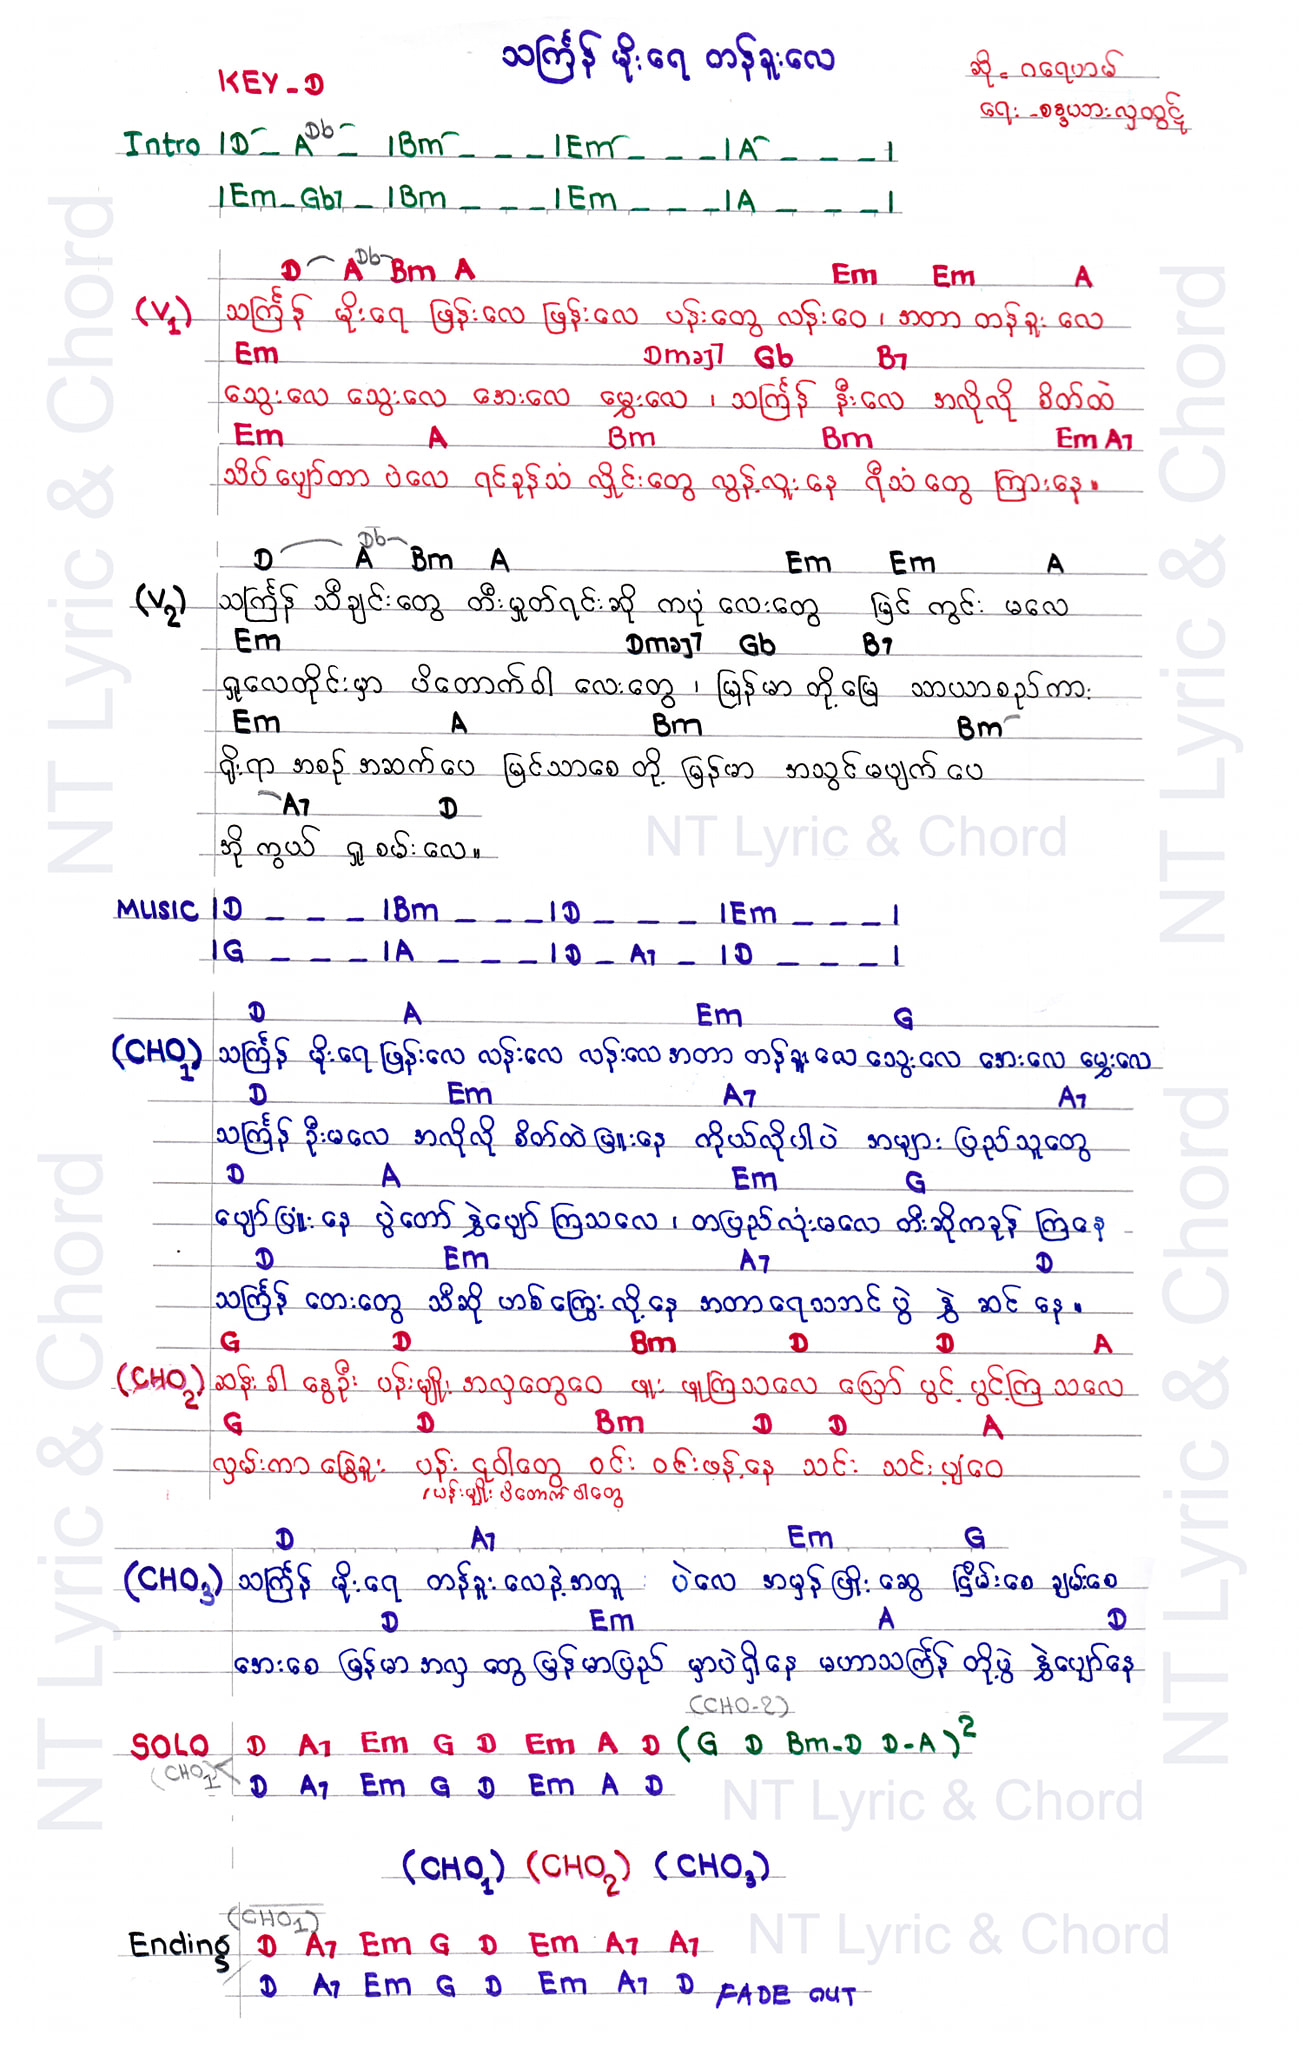 သင်္ကြန် မိုးရေ တန်ခူးလေ
KEY - D
ဆို - ဂရေဟမ်
ရေး - စန္ဒယားလှထွဋ်
Intro |D _ A Db _ |Bm _ _ _ |Em _ _ _ |A _ _ _ |
|Em _ Gb7 _ |Bm _ _ _ |Em _ _ _ |A _ _ _ |
D A Db Bm A Em Em A
(V1) သင်္ကြန် မိုးရေ ဖြန်းလေ ဖြန်းလေ ပန်းတွေ လန်းဝေ ၊ အတာ တန်ခူး လေ
Em Dmaj7 Gb B7
သွေးလေ သွေးလေ အေးလေ မွှေးလေ ၊ သင်္ကြန် နီးလေ အလိုလို စိတ်ထဲ
Em A Bm Bm Em A7
သိပ်ပျော်တာ ပဲလေ ရင်ခုန်သံ လှိုင်းတွေ လွန့်လူးနေ ရီသံတွေ ကြားနေ။
D A Db Bm A Em Em A
(V2) သင်္ကြန် သီချင်းတွေ တီးမှုတ်ရင်းဆို ကပုံ လေးတွေ မြင် ကွင်း မလေ
Em Dmaj7 Gb B7
ရှုလေတိုင်းမှာ ပိတောက်ဝါ လေးတွေ ၊ မြန်မာ တို့မြေ သာယာစည်ကား
Em A Bm Bm
ရိုးရာ အစဉ် အဆက်ပေ မြင်သာစေ တို့ မြန်မာ အသွင်မပျက် ပေ
A7 D
ဘို့ကွယ် ရှုစမ်းလေ။
MUSIC |D _ _ _ |Bm _ _ _ |D _ _ _ |Em _ _ _ |
|G _ _ _ |A _ _ _ |D _ A7 _ |D _ _ _ |
D A Em G
(CHO1) သင်္ကြန် မိုးရေ ဖြန်းလေ လန်းလေ လန်းလေ အတာ တန်ခူး လေ သွေးလေ အေးလေ မွှေးလေ
D Em A7 A7
သင်္ကြန် ဦးမလေ အလိုလို စိတ်ထဲ မြူးနေ ကိုယ်လိုပါပဲ အများ ပြည်သူတွေ
D A Em G
ပျော်ပြုံး နေ ပွဲတော် နွှဲပျော် ကြသလေ ၊ တပြည်လုံးမလေ တီးဆိုကခုန် ကြနေ
D Em A7 D
သင်္ကြန် တေးတွေ သီဆို ဟစ်ကြွေးလို့နေ အတာရေသဘင် ပွဲ နွှဲ ဆင် နေ။
G D Bm D D A
(CHO2) ဆန်းခါ နွေဦး ပန်းမျိုး အလှတွေဝေ ဖူး ဖူးကြသလေ သြော် ပွင့် ပွင့်ကြ သလေ
G D Bm D D A
လှမ်းကာ ခြွေခူး ပန်း ငုဝါတွေ ဝင်း ဝင်းဖန့်နေ သင်း သင်းပျံ့ဝေ
(ပန်းမျိုး ပိတောက်ဝါတွေ
D A7 Em G
(CHO3) သင်္ကြန် မိုးရေ တန်ခူး လေနဲ့အတူ ပဲလေ အမှန် ဖြိုးဆွေ ငြိမ်းစေ ချမ်းစေ
D Em A D
အေးစေ မြန်မာ အလှ တွေ မြန်မာပြည် မှာပဲရှိနေ မဟာသင်္ကြန် တို့ပွဲ နွှဲပျော်နေ
(CHO-2)
SOLO D A7 Em G D Em A D (G D Bm-D D-A)2
(CHO1) D A7 Em G D Em A D
(CHO1) (CHO2) (CHO3)
(CHO1)
Ending D A7 Em G D Em A7 A7
D A7 Em G D Em A7 D FADE OUT
NT Lyric & Chord
NT Lyric & Chord
NT Lyric & Chord
NT Lyric & Chord
NT Lyric & Chord
NT Lyric & Chord
NT Lyric & Chord